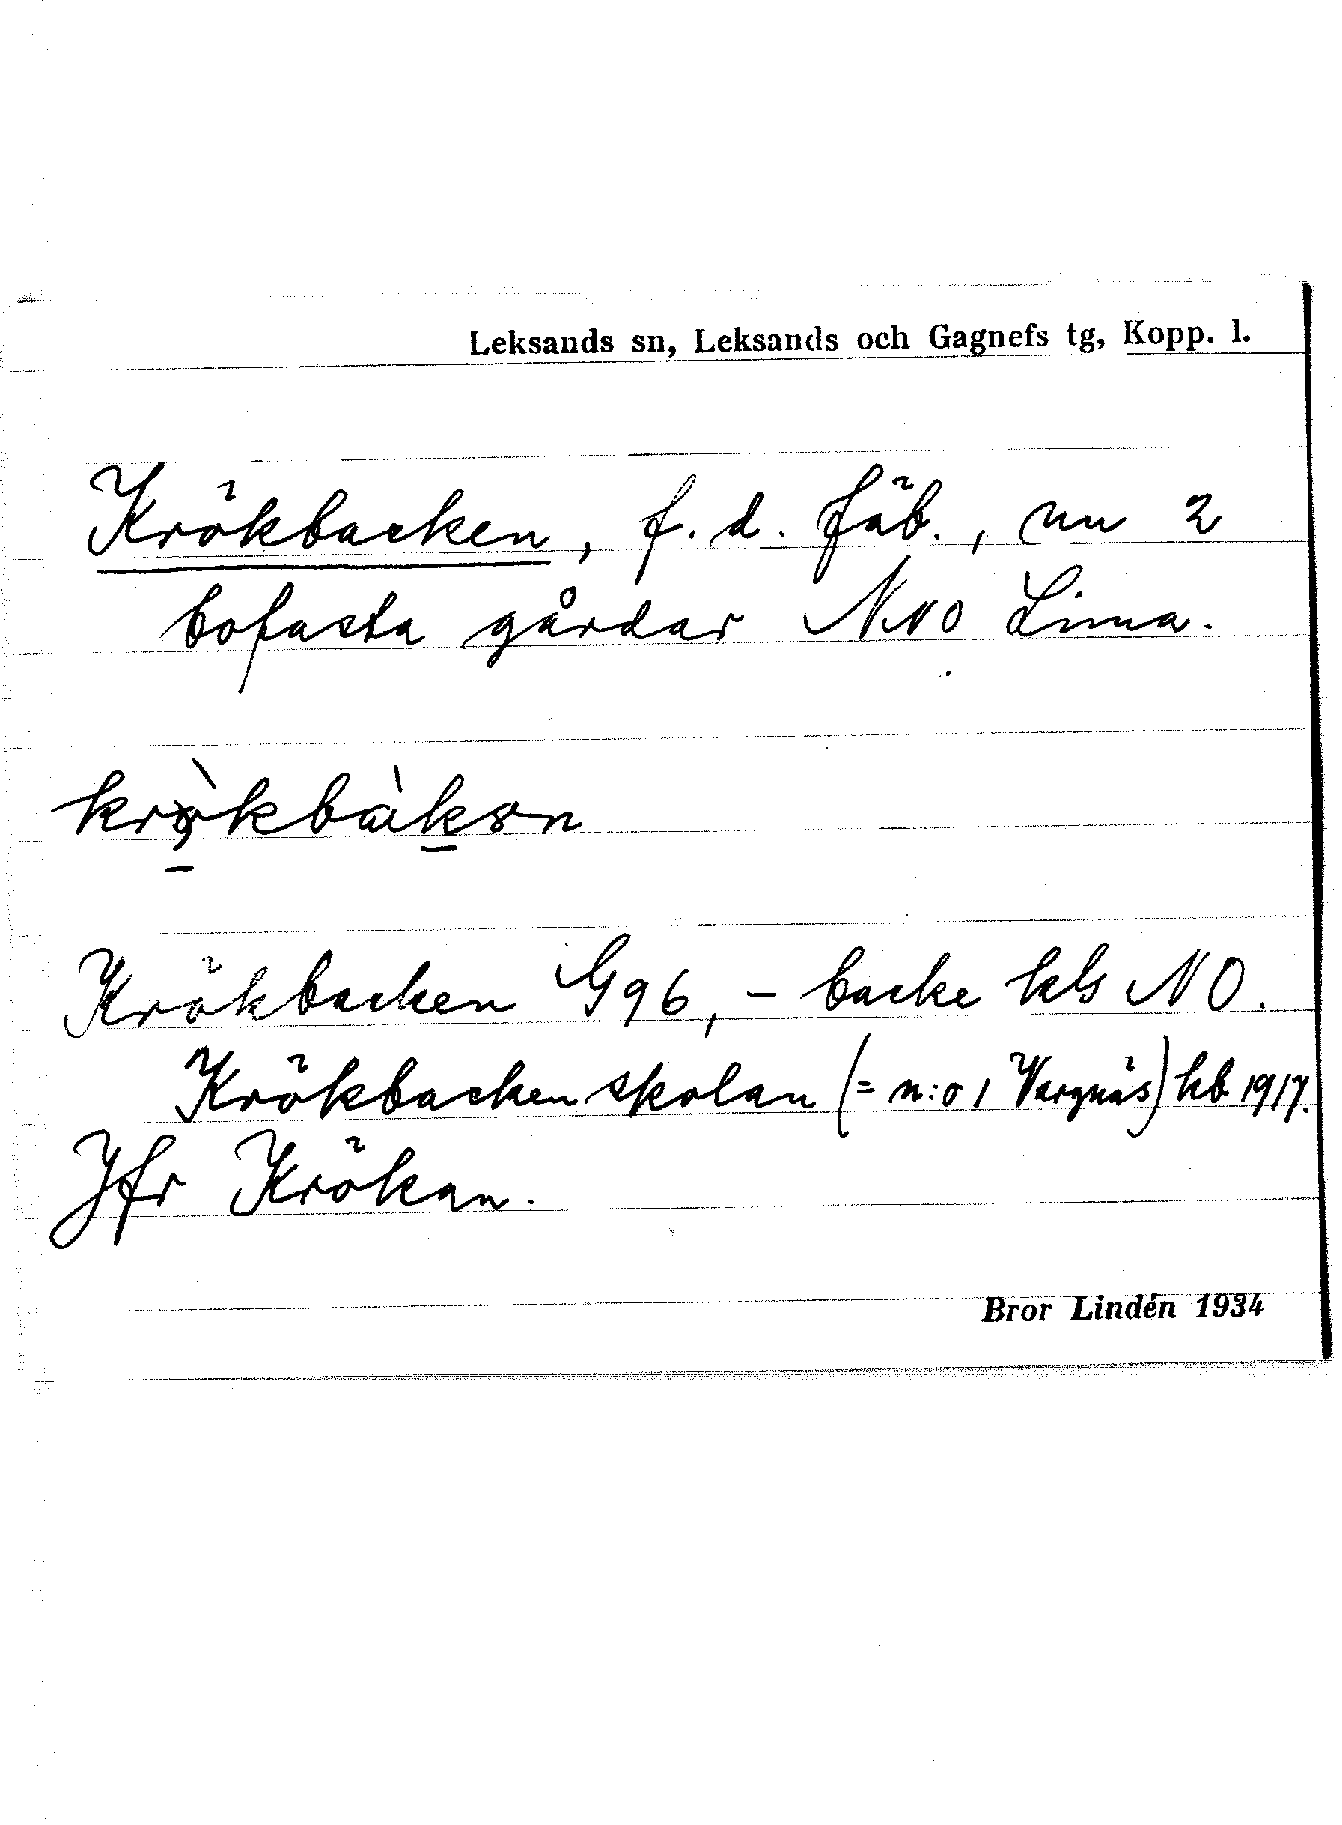 Leksands sn, Leksands och Gagnefs tg, Kopp. l.
Krökbacken, f. d. fäb., nu 2
bofasta gårdar NNO Lima.
Krökbacken G96, – backe kls NO.
Krökbacken skolan (= n:o 1 Vargnäs) hb 1917.
Jfr Krökan.
Bror Lindén 1934